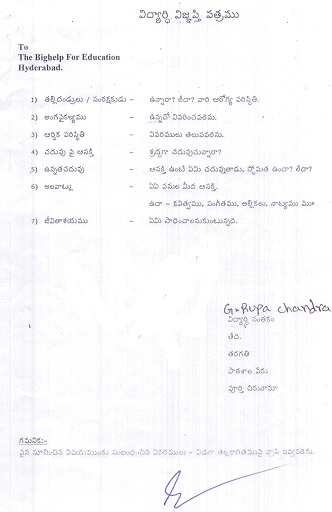 విద్యార్థి విజ్ఞప్తి పత్రము
To
The Bighelp For Education
Hyderabad.
1) తల్లిదండ్రులు / సంరక్షకుడు – ఉన్నారా? లేదా? వారి ఆరోగ్య పరిస్థితి.
2) అంగవైకల్యము – ఉన్నచో వివరించవలెను.
3) ఆర్థిక పరిస్థితి – వివరములు తెలుపవలెను.
4) చదువు పై ఆసక్తి – శ్రద్ధగా చదువుచున్నారా?
5) ఉన్నతచదువు – ఆసక్తి ఉంటే ఏమి చదువుతాడు, స్తోమత ఉందా? లేదా?
6) అలవాట్లు – ఏఏ పనుల మీద ఆసక్తి.
ఉదా – కవిత్వము, సంగీతము, అల్లికలు, నాట్యము మొ॥
7) జీవితాశయము – ఏమి సాధించాలనుకుంటున్నది.
G. Rupa chandra
విద్యార్థి సంతకం
తేది.
తరగతి
పాఠశాల పేరు
పూర్తి చిరునామా
గమనిక:-
పైన సూచించిన విషయములకు సంబంధించిన వివరములు – విడిగా తెల్లకాగితముపై వ్రాసి ఇవ్వవలెను.